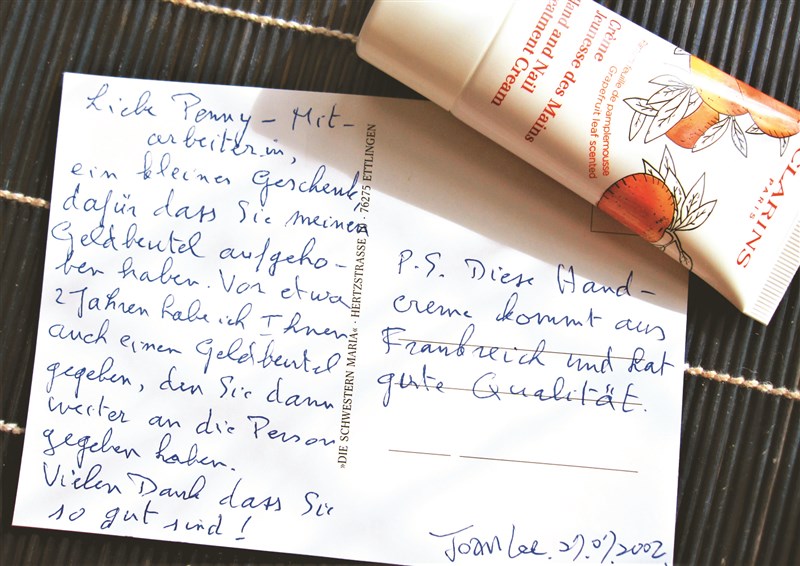 Liebe Penny-Mit-
arbeiterin,
ein kleines Geschenk,
dafür dass Sie meinen
Geldbeutel aufgeho-
ben haben. Vor etwa
2 Jahren habe ich Ihnen
auch einen Geldbeutel
gegeben, den Sie dann
weiter an die Person
gegeben haben.
Vielen Dank dass Sie
so gut sind!
»DIE SCHWESTERN MARIA« · HERTZSTRASSE · 76275 ETTLINGEN
P.S. Diese Hand-
creme kommt aus
Frankreich und hat
gute Qualität.
CLARINS
PARIS
feuille de pamplemousse
Grapefruit leaf scented
Crème
Jeunesse des Mains
Hand and Nail
Treatment Cream